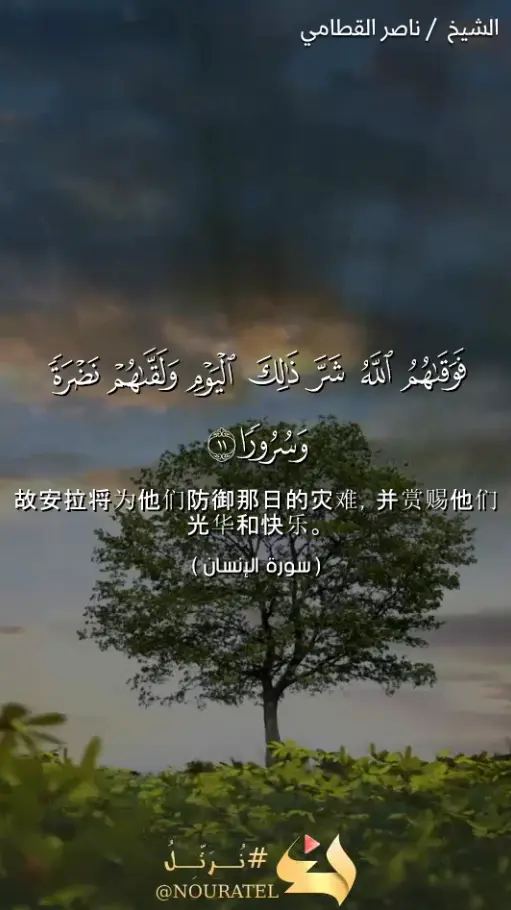 الشيخ / ناصر القطامي
فَوَقَىٰهُمُ ٱللَّهُ شَرَّ ذَٰلِكَ ٱلۡيَوۡمِ وَلَقَّىٰهُمۡ نَضۡرَةٗ
وَسُرُورٗا ١١
故安拉将为他们防御那日的灾难, 并赏赐他们
光华和快乐。
( سورة الإنسان )
#نُرَتِّلُ
@NOURATEL